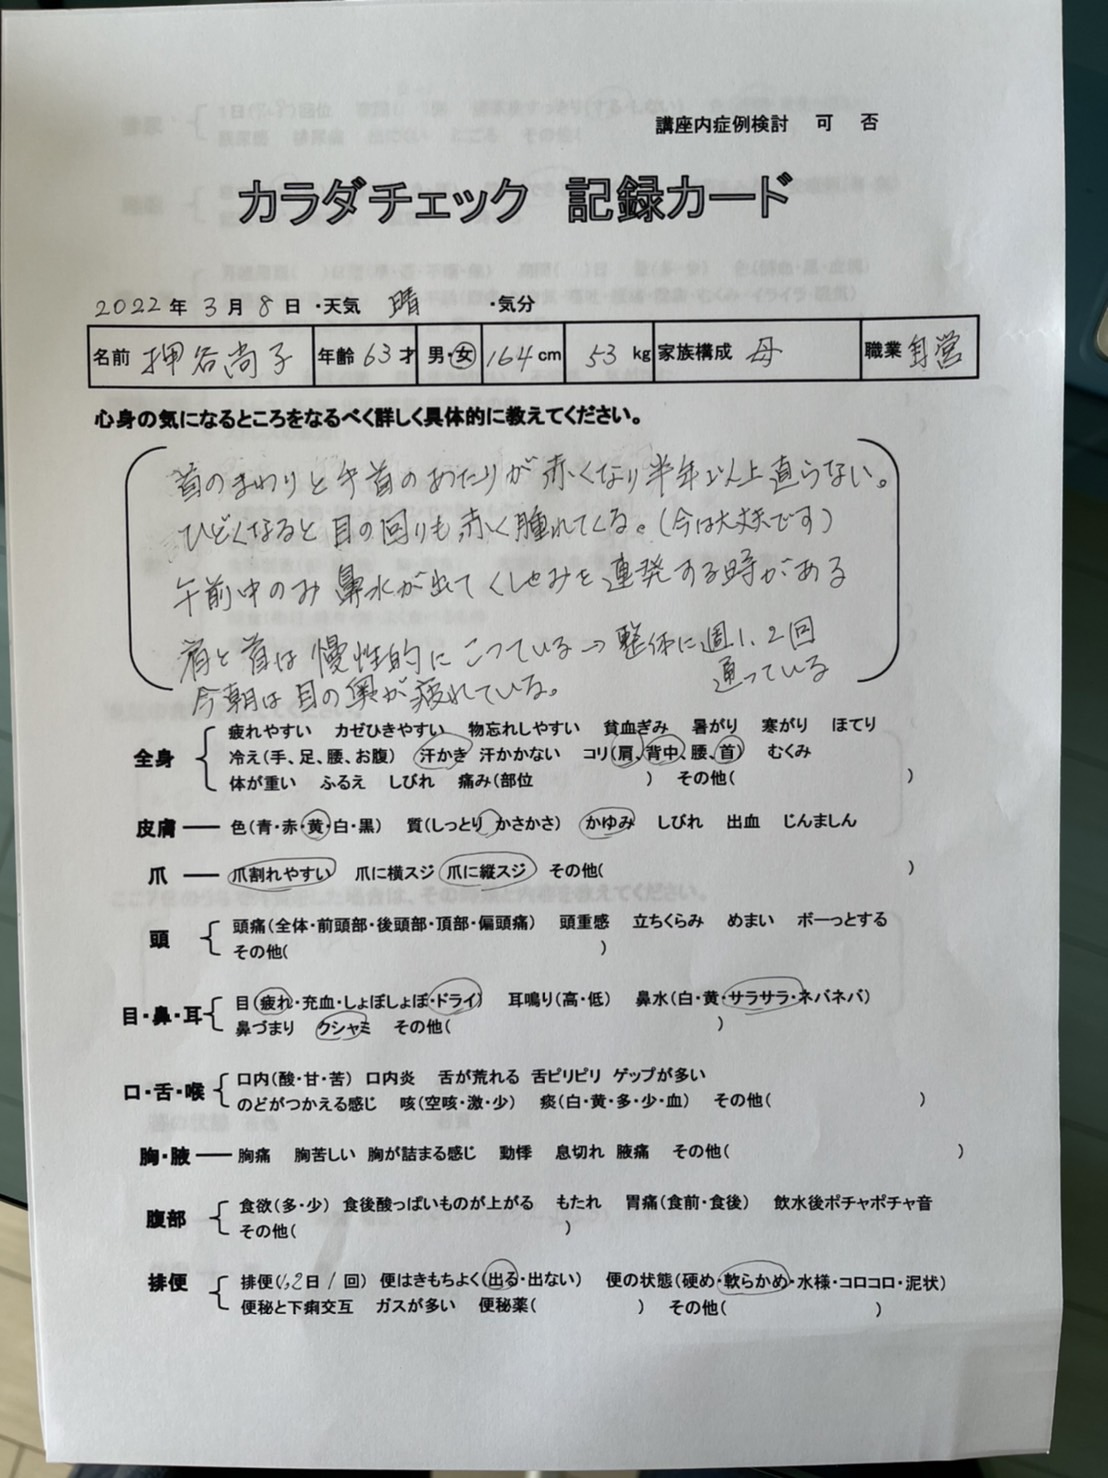 講座内症例検討 可 否
カラダチェック 記録カード
2022年 3月 8日 ・天気 晴 ・気分
名前 押谷尚子 年齢 63才 男・女 164cm 53kg 家族構成 母 職業 自営
心身の気になるところをなるべく詳しく具体的に教えてください。
首のまわりと手首のあたりが赤くなり半年以上直らない。
ひどくなると目の回りも赤く腫れてくる。(今は大丈夫です)
午前中のみ鼻水が出てくしゃみを連発する時がある
肩と首は慢性的にこっている→整体に週1、2回
通っている
今朝は目の奥が疲れている。
疲れやすい カゼひきやすい 物忘れしやすい 貧血ぎみ 暑がり 寒がり ほてり
全身 冷え(手、足、腰、お腹) 汗かき 汗かかない コリ(肩、背中、腰、首) むくみ
体が重い ふるえ しびれ 痛み(部位 ) その他( )
皮膚 ── 色(青・赤・黄・白・黒) 質(しっとり かさかさ) かゆみ しびれ 出血 じんましん
爪 ── 爪割れやすい 爪に横スジ 爪に縦スジ その他( )
頭 頭痛(全体・前頭部・後頭部・頂部・偏頭痛) 頭重感 立ちくらみ めまい ボーっとする
その他( )
目・鼻・耳 目(疲れ・充血・しょぼしょぼ・ドライ) 耳鳴り(高・低) 鼻水(白・黄・サラサラ・ネバネバ)
鼻づまり クシャミ その他( )
口・舌・喉 口内(酸・甘・苦) 口内炎 舌が荒れる 舌ピリピリ ゲップが多い
のどがつかえる感じ 咳(空咳・激・少) 痰(白・黄・多・少・血) その他( )
胸・腋 ── 胸痛 胸苦しい 胸が詰まる感じ 動悸 息切れ 腋痛 その他( )
腹部 食欲(多・少) 食後酸っぱいものが上がる もたれ 胃痛(食前・食後) 飲水後ポチャポチャ音
その他( )
排便 排便(1、2日1回) 便はきもちよく(出る・出ない) 便の状態(硬め・軟らかめ・水様・コロコロ・泥状)
便秘と下痢交互 ガスが多い 便秘薬( ) その他( )